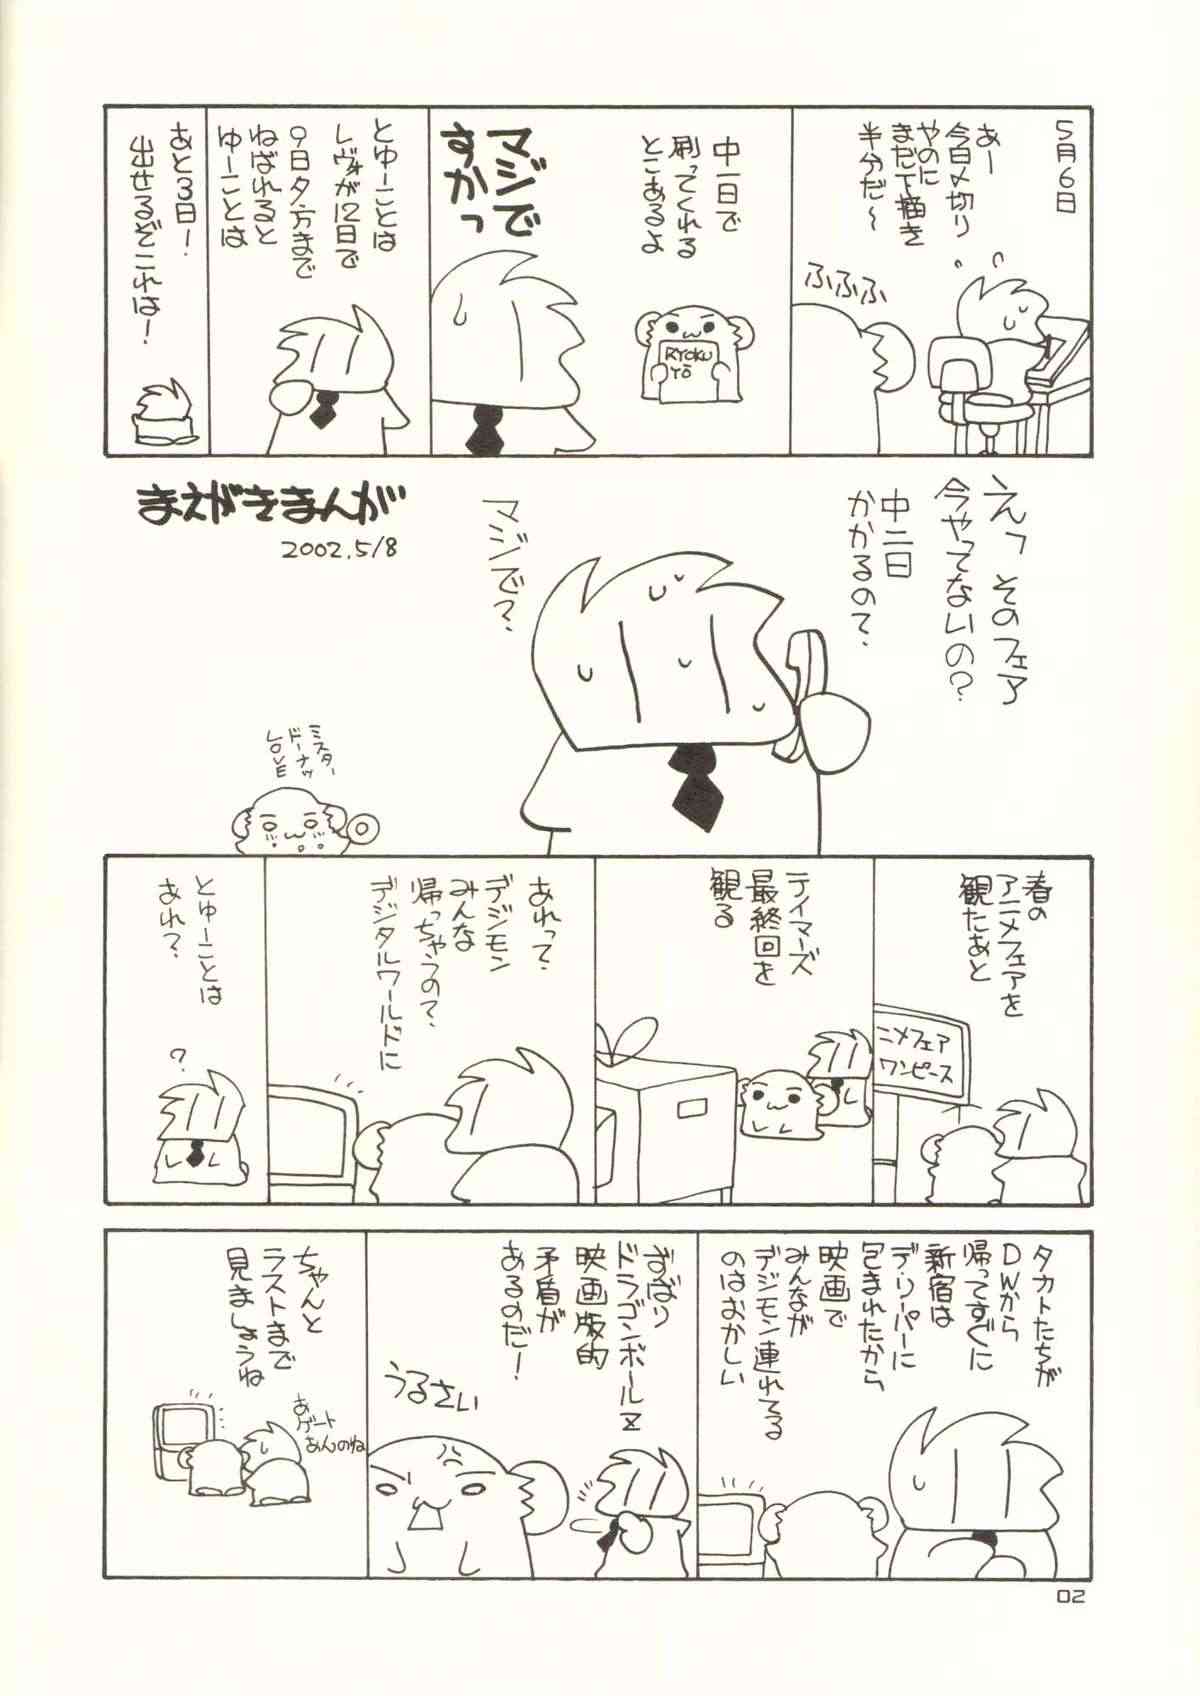 5月6日
あー
今日〆切り
やのに
まだ下描き
半分だ～
ふふふ
中一日で
刷ってくれる
とこあるよ
RYOKU
YŌ
マジで
すかっ
とゆーことは
レヴォが12日で
9日夕方まで
ねばれると
ゆーことは
あと3日！
出せるぞこれは！
まえがきまんが
2002.5/8
えっ そのフェア
今やってないの？
中二日
かかるの？
マジで？
ミスター
ドーナッツ
LOVE
春の
アニメフェアを
観たあと
ニメフェア
ワンピース
テイマーズ
最終回を
観る
あれって、
デジモン
みんな
帰っちゃうの？
デジタルワールドに
とゆーことは
あれ？
？
タカトたちが
DWから
帰ってすぐに
新宿は
デ・リーパーに
包まれたから
映画で
みんなが
デジモン連れてる
のはおかしい
ずばり
ドラゴンボールZ
映画版的
矛盾が
あるのだ！
うるさい
ちゃんと
ラストまで
見ましょうね
あ
ゲート
あんのね
02